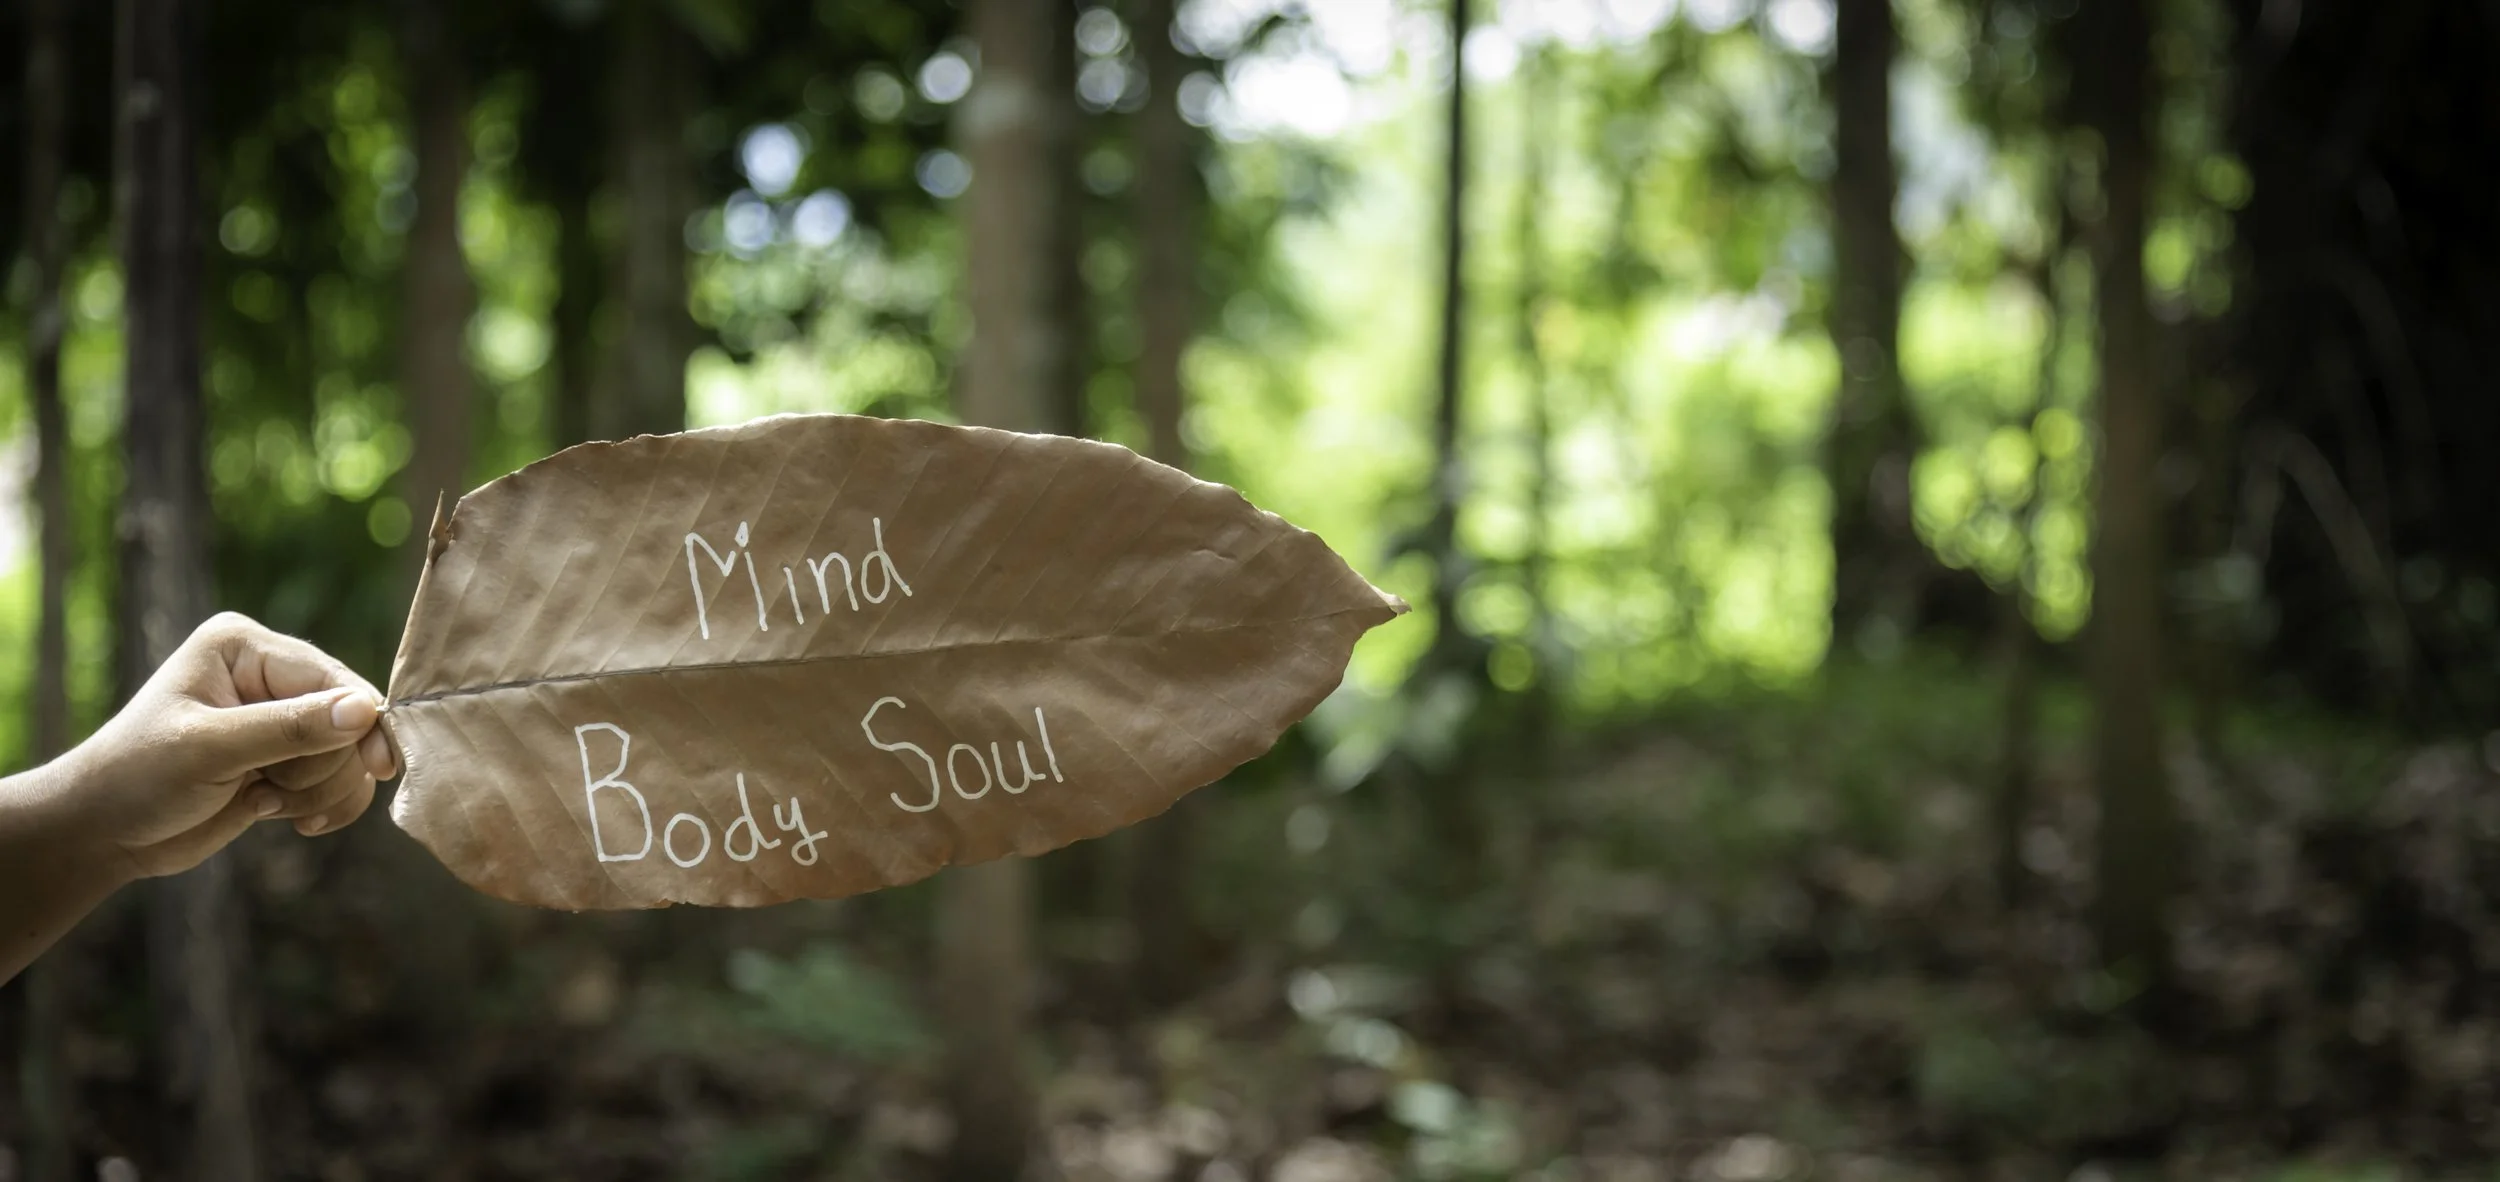 Mind
Body Soul